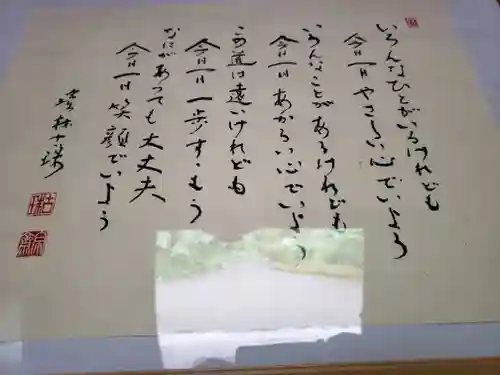 いろんなひとがいるけれども
今日一日やさしい心でいよう
いろんなことがあるけれども
今日一日あかるい心でいよう
この道は遠いけれども
今日一日一歩すゝもう
なにがあっても大丈夫
今日一日笑顔でいよう